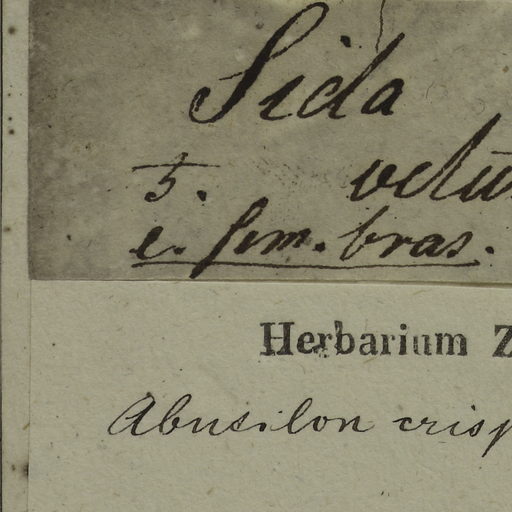 Sida
5.
e. sem. bras.
Herbarium Z
Abusilon crisp